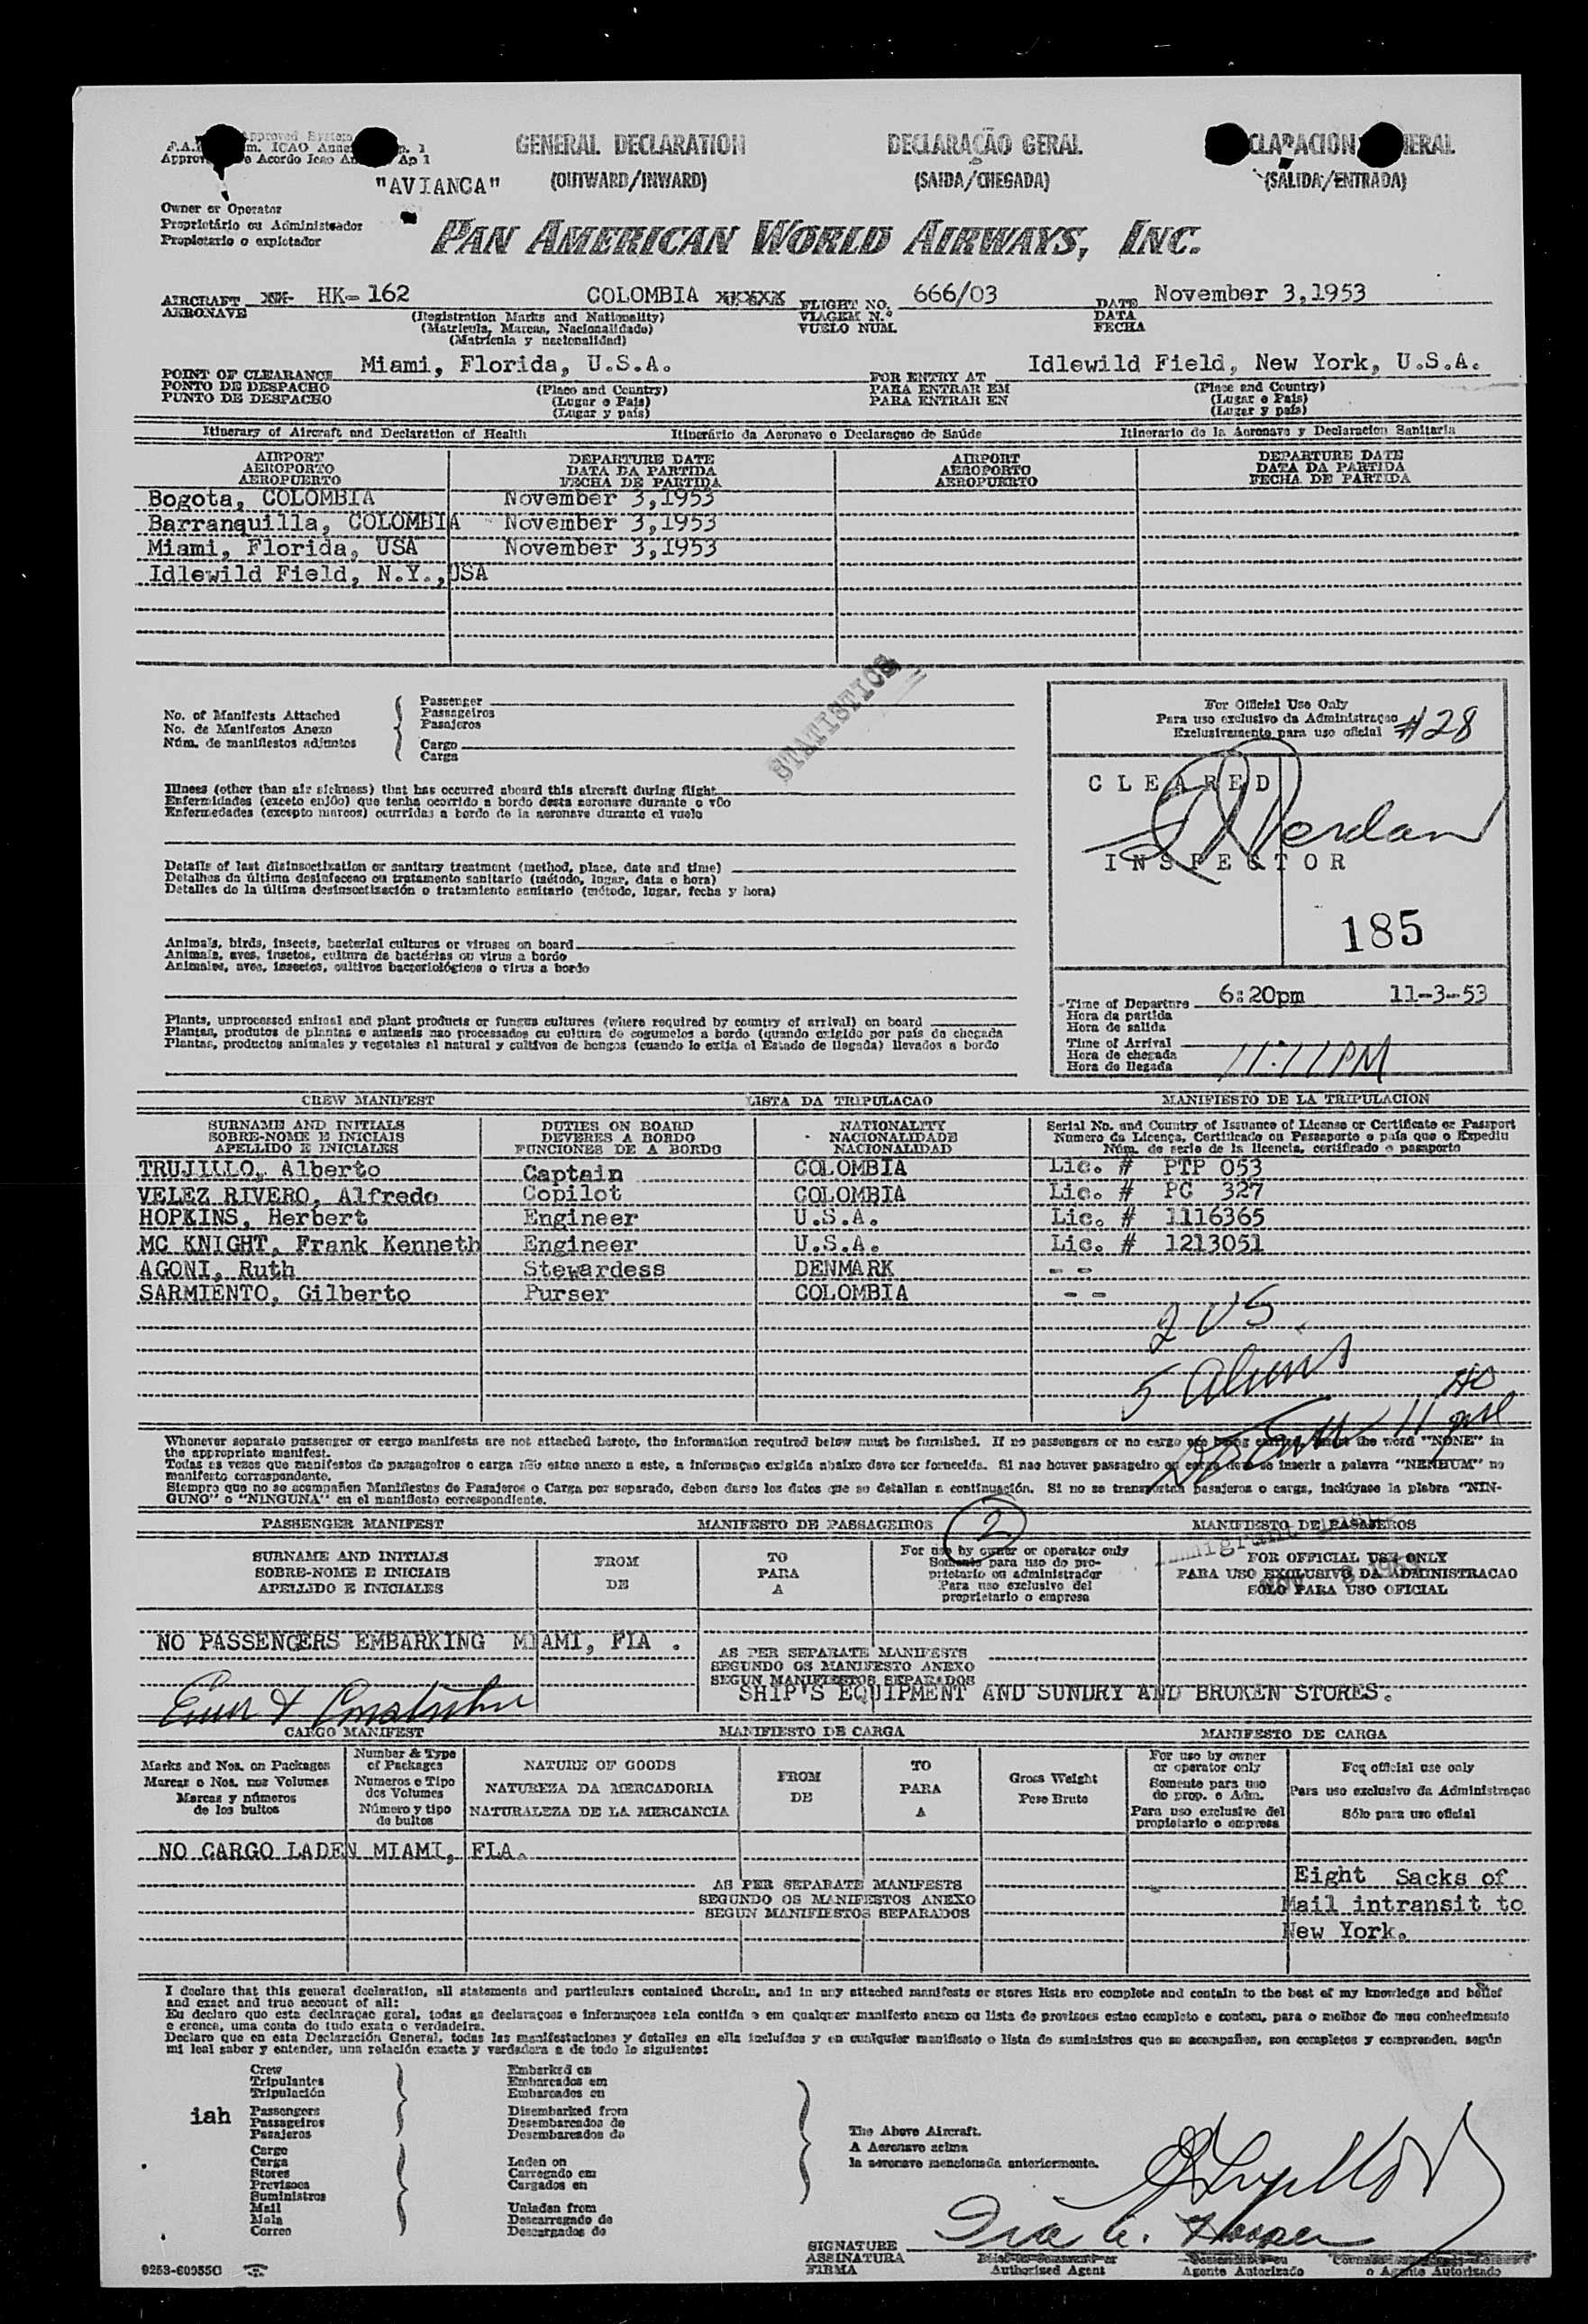 GENERAL DECLARATION DECLARAÇÃO GERAL
(OUTWARD/INWARD) (SAIDA/CHEGADA) (SALIDA/ENTRADA)
"AVIANCA"
Owner or Operator
Proprietário ou Administrador
Propietario o explotador
PAN AMERICAN WORLD AIRWAYS, INC.
AIRCRAFT HK-162 COLOMBIA FLIGHT NO. 666/03 DATE November 3,1953
AERONAVE (Registration Marks and Nationality) VIAGEM N.º DATA
(Matricula, Marcas, Nacionalidade) VUELO NUM. FECHA
(Matricula y nacionalidad)
POINT OF CLEARANCE Miami, Florida, U.S.A. FOR ENTRY AT Idlewild Field, New York, U.S.A.
PONTO DE DESPACHO (Place and Country) PARA ENTRAR EM (Place and Country)
PUNTO DE DESPACHO (Lugar e País) PARA ENTRAR EN (Lugar e País)
(Lugar y país) (Lugar y país)
Itinerary of Aircraft and Declaration of Health Itinerário da Aeronave e Declaraçao de Saúde Itinerario de la Aeronave y Declaracion Sanitaria
AIRPORT DEPARTURE DATE AIRPORT DEPARTURE DATE
AEROPORTO DATA DA PARTIDA AEROPORTO DATA DA PARTIDA
AEROPUERTO FECHA DE PARTIDA AEROPUERTO FECHA DE PARTIDA
Bogota, COLOMBIA November 3,1953
Barranquilla, COLOMBIA November 3,1953
Miami, Florida, USA November 3,1953
Idlewild Field, N.Y.,USA
STATISTICS
No. of Manifests Attached Passenger
No. de Manifestos Anexo Passageiros
Núm. de manifiestos adjuntos Pasajeros
Cargo
Carga
For Official Use Only
Para uso exclusivo da Administraçao
Exclusivamente para uso oficial #28
CLEARED
INSPECTOR
185
Illness (other than air sickness) that has occurred aboard this aircraft during flight
Enfermidades (exceto enjôo) que tenha ocorrido a bordo desta aeronave durante o vôo
Enfermedades (excepto mareos) ocurridas a bordo de la aeronave durante el vuelo
Details of last disinsectization or sanitary treatment (method, place, date and time)
Detalhes da última desinfeccao ou tratamento sanitario (método, lugar, data e hora)
Detalles de la última desinsectización o tratamiento sanitario (método, lugar, fecha y hora)
Animals, birds, insects, bacterial cultures or viruses on board
Animais, aves, insetos, cultura de bactérias ou virus a bordo
Animales, aves, insectos, cultivos bacteriológicos o virus a bordo
Plants, unprocessed animal and plant products or fungus cultures (where required by country of arrival) on board
Plantas, produtos de plantas e animais nao processados ou cultura de cogumelos a bordo (quando exigido por país de chegada
Plantas, productos animales y vegetales al natural y cultivos de hongos (cuando lo exija el Estado de llegada) llevados a bordo
Time of Departure 6:20pm 11-3-53
Hora da partida
Hora de salida
Time of Arrival
Hora de chegada 11:11PM
Hora de llegada
CREW MANIFEST LISTA DA TRIPULACAO MANIFIESTO DE LA TRIPULACION
SURNAME AND INITIALS DUTIES ON BOARD NATIONALITY Serial No. and Country of Issuance of License or Certificate or Passport
SOBRE-NOME E INICIAIS DEVERES A BORDO NACIONALIDADE Numero da Licença, Certificado ou Passaporte e país que o Expediu
APELLIDO E INICIALES FUNCIONES DE A BORDO NACIONALIDAD Núm. de serie de la licencia, certificado o pasaporte
TRUJILLO, Alberto Captain COLOMBIA Lic. # PTP 053
VELEZ RIVERO, Alfredo Copilot COLOMBIA Lic. # PC 327
HOPKINS, Herbert Engineer U.S.A. Lic. # 1116365
MC KNIGHT, Frank Kenneth Engineer U.S.A. Lic. # 1213051
AGONI, Ruth Stewardess DENMARK - -
SARMIENTO, Gilberto Purser COLOMBIA - -
2 US
5 Aliens
Whenever separate passenger or cargo manifests are not attached hereto, the information required below must be furnished. If no passengers or no cargo are being carried, insert the word "NONE" in
the appropriate manifest.
Todas as vezes que manifestos de passageiros o carga não estao anexo a este, a informaçao exigida abaixo deve ser fornecida. Si nao houver passageiro ou carga deve se inserir a palavra "NENHUM" no
manifesto correspondente.
Siempre que no se acompañen Manifiestos de Pasajeros o Carga por separado, deben darse los datos que se detallan a continuación. Si no se transportan pasajeros o carga, inclúyase la plabra "NIN-
GUNO" o "NINGUNA" en el manifiesto correspondiente.
PASSENGER MANIFEST MANIFESTO DE PASSAGEIROS 2 MANIFIESTO DE PASAJEROS
SURNAME AND INITIALS FROM TO For use by owner or operator only FOR OFFICIAL USE ONLY
SOBRE-NOME E INICIAIS DE PARA Somente para uso do pro- PARA USO EXCLUSIVO DA ADMINISTRACAO
APELLIDO E INICIALES A prietario ou administrador SOLO PARA USO OFICIAL
Para uso exclusivo del
proprietario o empresa
NO PASSENGERS EMBARKING MIAMI, FLA .
AS PER SEPARATE MANIFESTS
SEGUNDO OS MANIFESTO ANEXO
SEGUN MANIFIESTOS SEPARADOS
SHIP'S EQUIPMENT AND SUNDRY AND BROKEN STORES.
CARGO MANIFEST MANIFIESTO DE CARGA MANIFESTO DE CARGA
Marks and Nos. on Packages Number & Type of Packages NATURE OF GOODS FROM TO Gross Weight For use by owner or operator only For official use only
Marcas e Nos. nos Volumes Numeros e Tipo dos Volumes NATUREZA DA MERCADORIA DE PARA Peso Bruto Somente para uso do prop. e Adm. Para uso exclusivo da Administraçao
Marcas y números de los bultos Número y tipo de bultos NATURALEZA DE LA MERCANCIA A Para uso exclusivo del propietario o empresa Sólo para uso oficial
NO CARGO LADEN MIAMI, FLA.
AS PER SEPARATE MANIFESTS
SEGUNDO OS MANIFESTOS ANEXO
SEGUN MANIFIESTOS SEPARADOS
Eight Sacks of
Mail intransit to
New York.
I declare that this general declaration, all statements and particulars contained therein, and in any attached manifests or stores lists are complete and contain to the best of my knowledge and belief
and exact and true account of all:
Eu declaro que esta declaraçao geral, todas as declaraçoes e informaçoes nela contida e em qualquer manifesto anexo ou lista de provisoes estao completo e contem, para o melhor do meu conhecimento
e crenca, uma conta de tudo exata e verdadeira.
Declaro que en esta Declaración General, todas las manifestaciones y detalles en ella incluídos y en cualquier manifiesto o lista de suministros que se acompañen, son completos y comprenden, según
mi leal saber y entender, una relación exacta y verdadera a de todo lo siguiente:
Crew Embarked on
Tripulantes Embarcados em
Tripulación Embarcados en
iah Passengers Disembarked from
Passageiros Desembarcados de
Pasajeros Desembarcados de
The Above Aircraft.
A Aeronave acima
la aeronave mencionada anteriormente.
Cargo
Carga Laden on
Stores Carregado em
Provisoes Cargados en
Suministros
Mail Unladen from
Mala Descarregado de
Correo Descargados de
SIGNATURE
ASSINATURA
FIRMA Authorized Agent Agente Autorizado o Agente Autorizado
9253-60055C